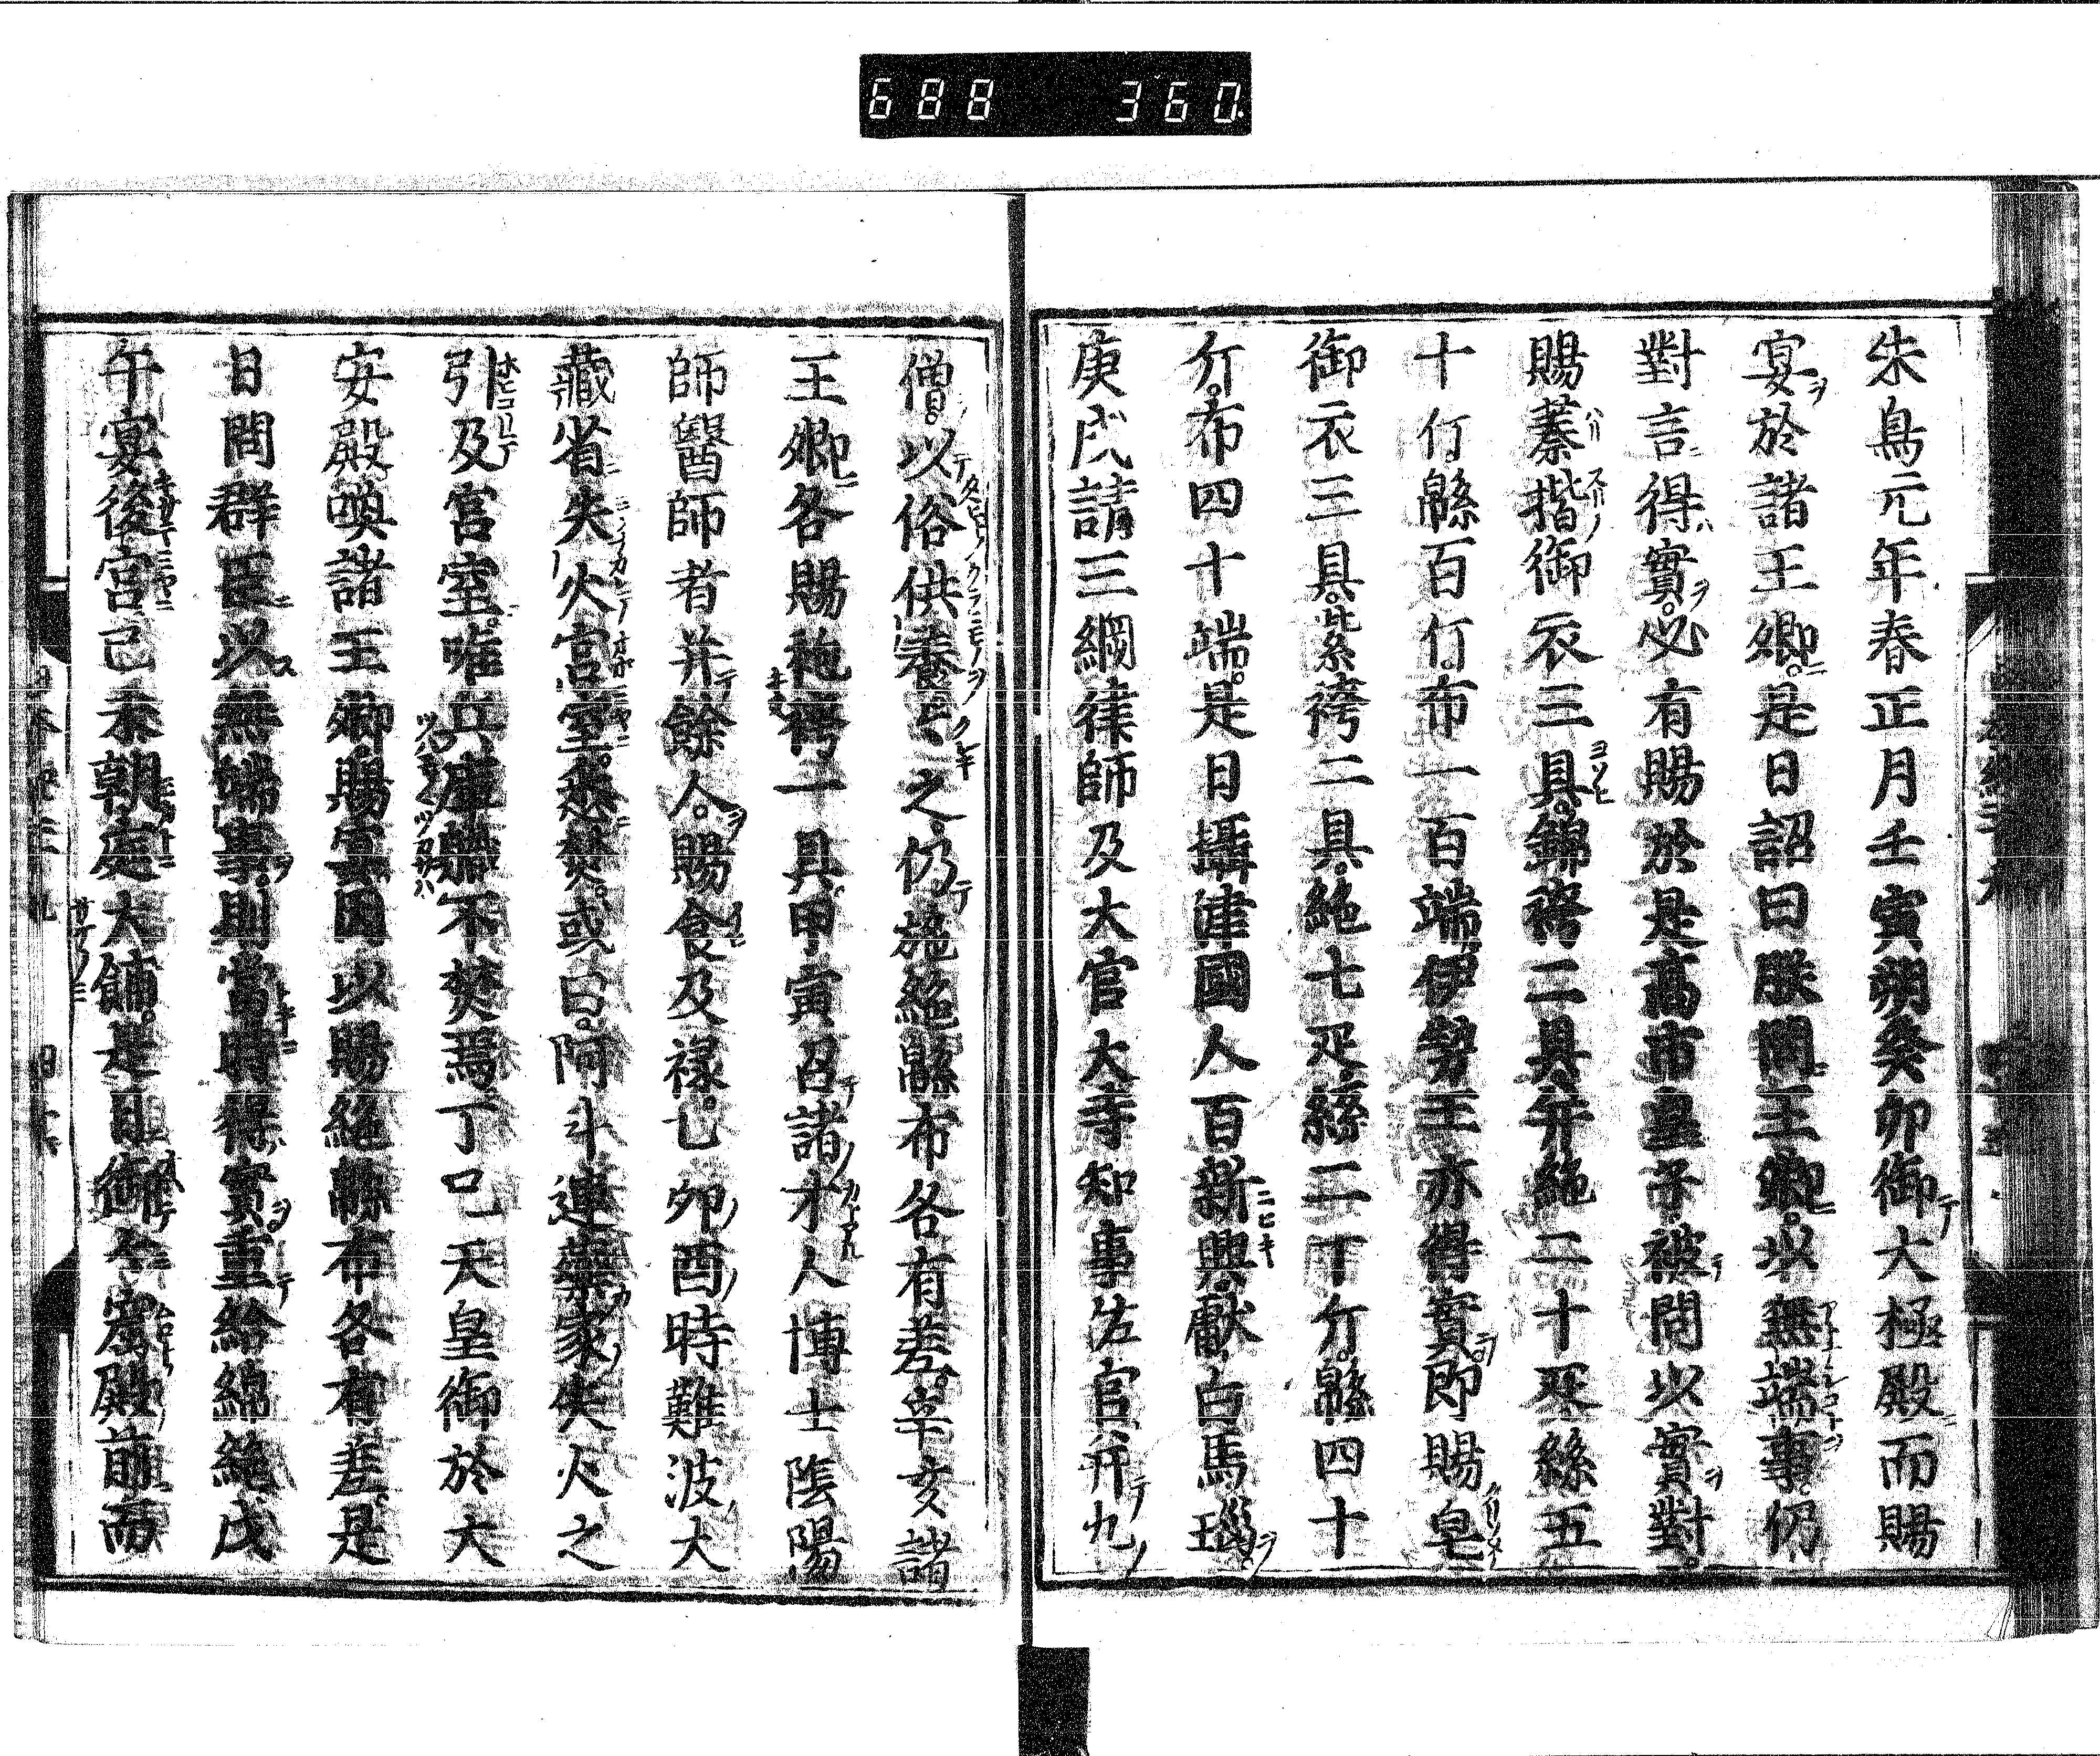 688 360
朱鳥元年春正月壬寅朔癸卯御大極殿而賜
宴於諸王卿。是日詔曰朕問王卿。以無端事。仍
對言得實。必有賜於是高市皇子被問以實對。
賜蓁揩御衣三具。錦袴二具并絁二十疋絲五
十斤緜百斤。布一百端。伊勢王亦得實。即賜皂
御衣三具。紫袴二具。絁七疋絲二十斤。緜四十
斤。布四十端。是日攝津國人百新興。獻白馬瑙。
庚戌請三綱律師及大官大寺知事佐官并九
僧。以俗供養々之。仍施絁緜布各有差。辛亥諸
王卿各賜袍袴一具。甲寅召諸才人博士陰陽
師醫師者并餘人。賜食及祿。乙卯酉時難波大
藏省失火宮室悉焚。或曰。阿斗連藥家失火之
引及宮室。唯兵庫職不焚焉丁巳天皇御於大
安殿喚諸王卿賜宴因以賜絁緜布各有差。是
日問群臣以無端事。則當時得實重給綿絁戊
午宴後宮己未朝庭大餔。是日御々窟殿前而